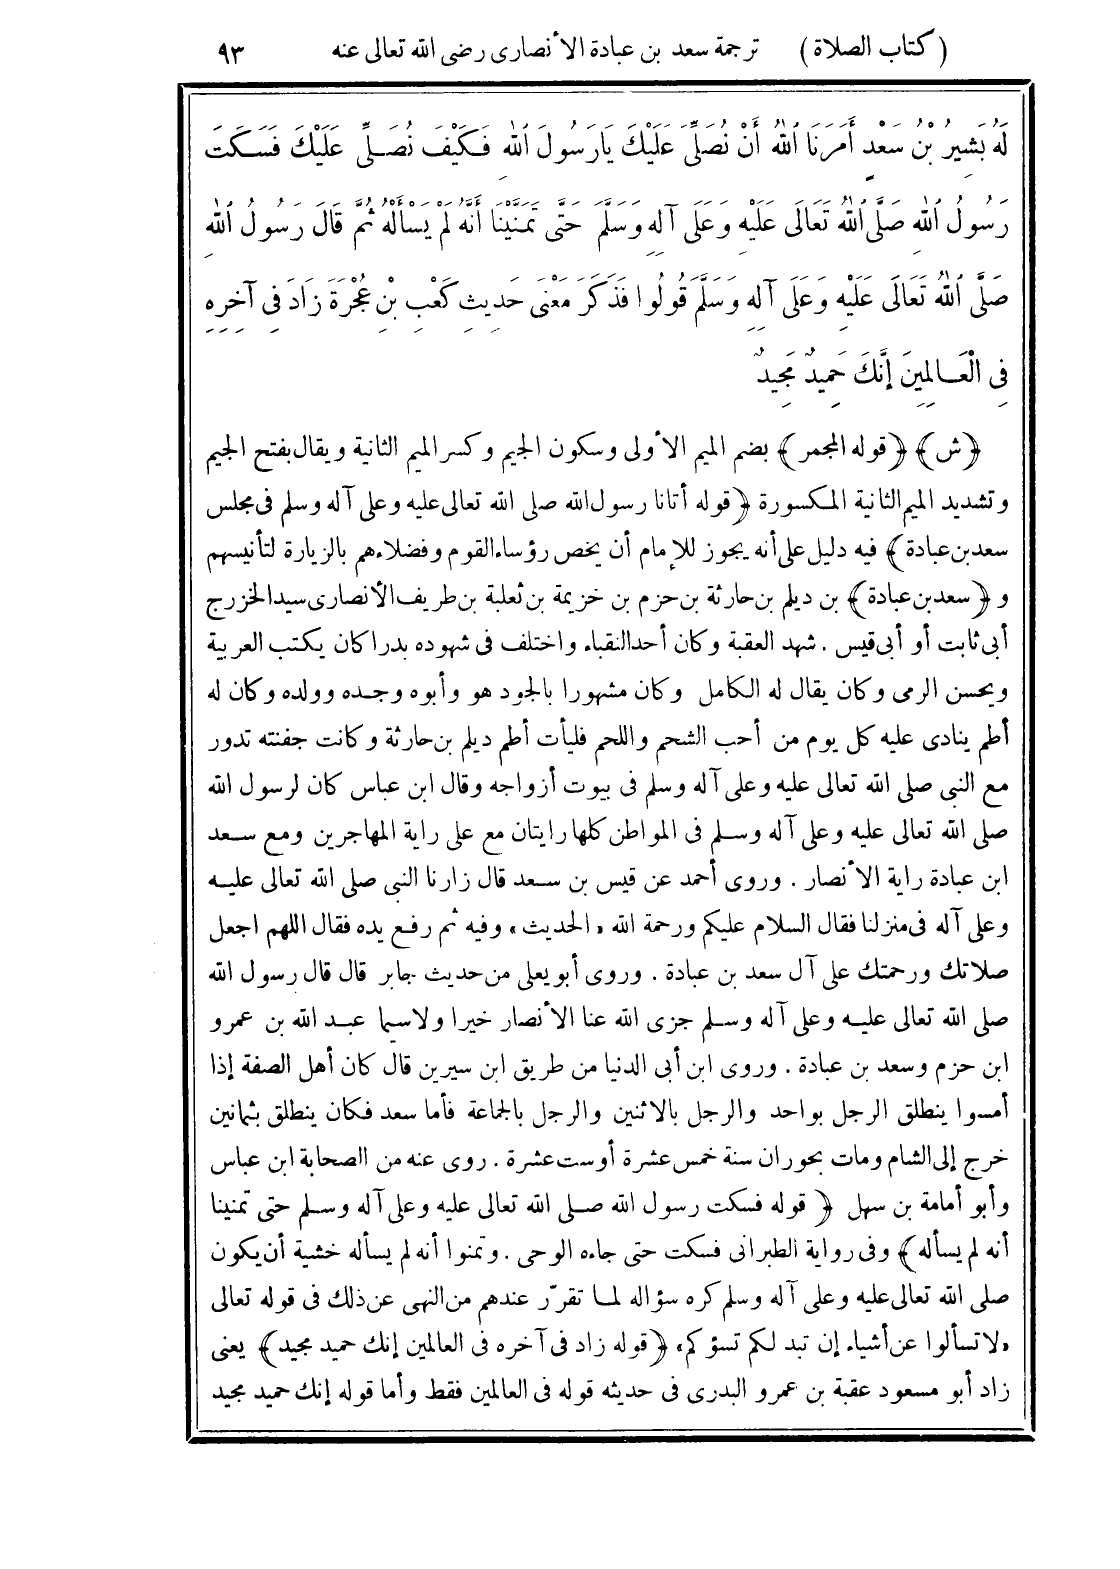 (كتاب الصلاة) ترجمة سعد بن عبادة الأنصارى رضى الله تعالى عنه ٩٣
لَهُ بَشِيرُ بْنُ سَعْدٍ أَمَرَنَا اللهُ أَنْ نُصَلِّىَ عَلَيْكَ يَارَسُولَ اللهِ فَكَيْفَ نُصَلِّى عَلَيْكَ فَسَكَتَ
رَسُولُ اللهِ صَلَّى اللهُ تَعَالَى عَلَيْهِ وَعَلَى آلِهِ وَسَلَّمَ حَتَّى تَمَنَّيْنَا أَنَّهُ لَمْ يَسْأَلْهُ ثُمَّ قَالَ رَسُولُ اللهِ
صَلَّى اللهُ تَعَالَى عَلَيْهِ وَعَلَى آلِهِ وَسَلَّمَ قُولُوا فَذَكَرَ مَعْنَى حَدِيثِ كَعْبِ بْنِ عُجْرَةَ زَادَ فِى آخِرِهِ
فِى الْعَالَمِينَ إِنَّكَ حَمِيدٌ مَجِيدٌ
﴿ش﴾ ﴿قوله المجمر﴾ بضم الميم الأولى وسكون الجيم وكسر الميم الثانية ويقال بفتح الجيم
وتشديد الميم الثانية المكسورة ﴿قوله أتانا رسول الله صلى الله تعالى عليه وعلى آله وسلم فى مجلس
سعد بن عبادة﴾ فيه دليل على أنه يجوز للإمام أن يخص رؤساء القوم وفضلاءهم بالزيارة لتأنيسهم
و ﴿سعد بن عبادة﴾ بن ديلم بن حارثة بن حزم بن خزيمة بن ثعلبة بن طريف الأنصارى سيد الخزرج
أبى ثابت أو أبى قيس . شهد العقبة وكان أحد النقباء واختلف فى شهوده بدرا كان يكتب العربية
ويحسن الرمى وكان يقال له الكامل وكان مشهورا بالجود هو وأبوه وجده وولده وكان له
أطم ينادى عليه كل يوم من أحب الشحم واللحم فليأت أطم ديلم بن حارثة وكانت جفنته تدور
مع النبى صلى الله تعالى عليه وعلى آله وسلم فى بيوت أزواجه وقال ابن عباس كان لرسول الله
صلى الله تعالى عليه وعلى آله وسلم فى المواطن كلها رايتان مع على راية المهاجرين ومع سعد
ابن عبادة راية الأنصار . وروى أحمد عن قيس بن سعد قال زارنا النبى صلى الله تعالى عليه
وعلى آله فى منزلنا فقال السلام عليكم ورحمة الله «الحديث» وفيه ثم رفع يده فقال اللهم اجعل
صلاتك ورحمتك على آل سعد بن عبادة . وروى أبو يعلى من حديث جابر قال قال رسول الله
صلى الله تعالى عليه وعلى آله وسلم جزى الله عنا الأنصار خيرا ولاسيما عبد الله بن عمرو
ابن حزم وسعد بن عبادة . وروى ابن أبى الدنيا من طريق ابن سيرين قال كان أهل الصفة إذا
أمسوا ينطلق الرجل بواحد والرجل بالاثنين والرجل بالجماعة فأما سعد فكان ينطلق بثمانين
خرج إلى الشام ومات بحوران سنة خمس عشرة أوست عشرة . روى عنه من الصحابة ابن عباس
وأبو أمامة بن سهل ﴿قوله فسكت رسول الله صلى الله تعالى عليه وعلى آله وسلم حتى تمنينا
أنه لم يسأله﴾ وفى رواية الطبرانى فسكت حتى جاءه الوحى . وتمنوا أنه لم يسأله خشية أن يكون
صلى الله تعالى عليه وعلى آله وسلم كره سؤاله لما تقرّر عندهم من النهى عن ذلك فى قوله تعالى
«لا تسألوا عن أشياء إن تبد لكم تسؤكم» ﴿قوله زاد فى آخره فى العالمين إنك حميد مجيد﴾ يعنى
زاد أبو مسعود عقبة بن عمرو البدرى فى حديثه قوله فى العالمين فقط وأما قوله إنك حميد مجيد